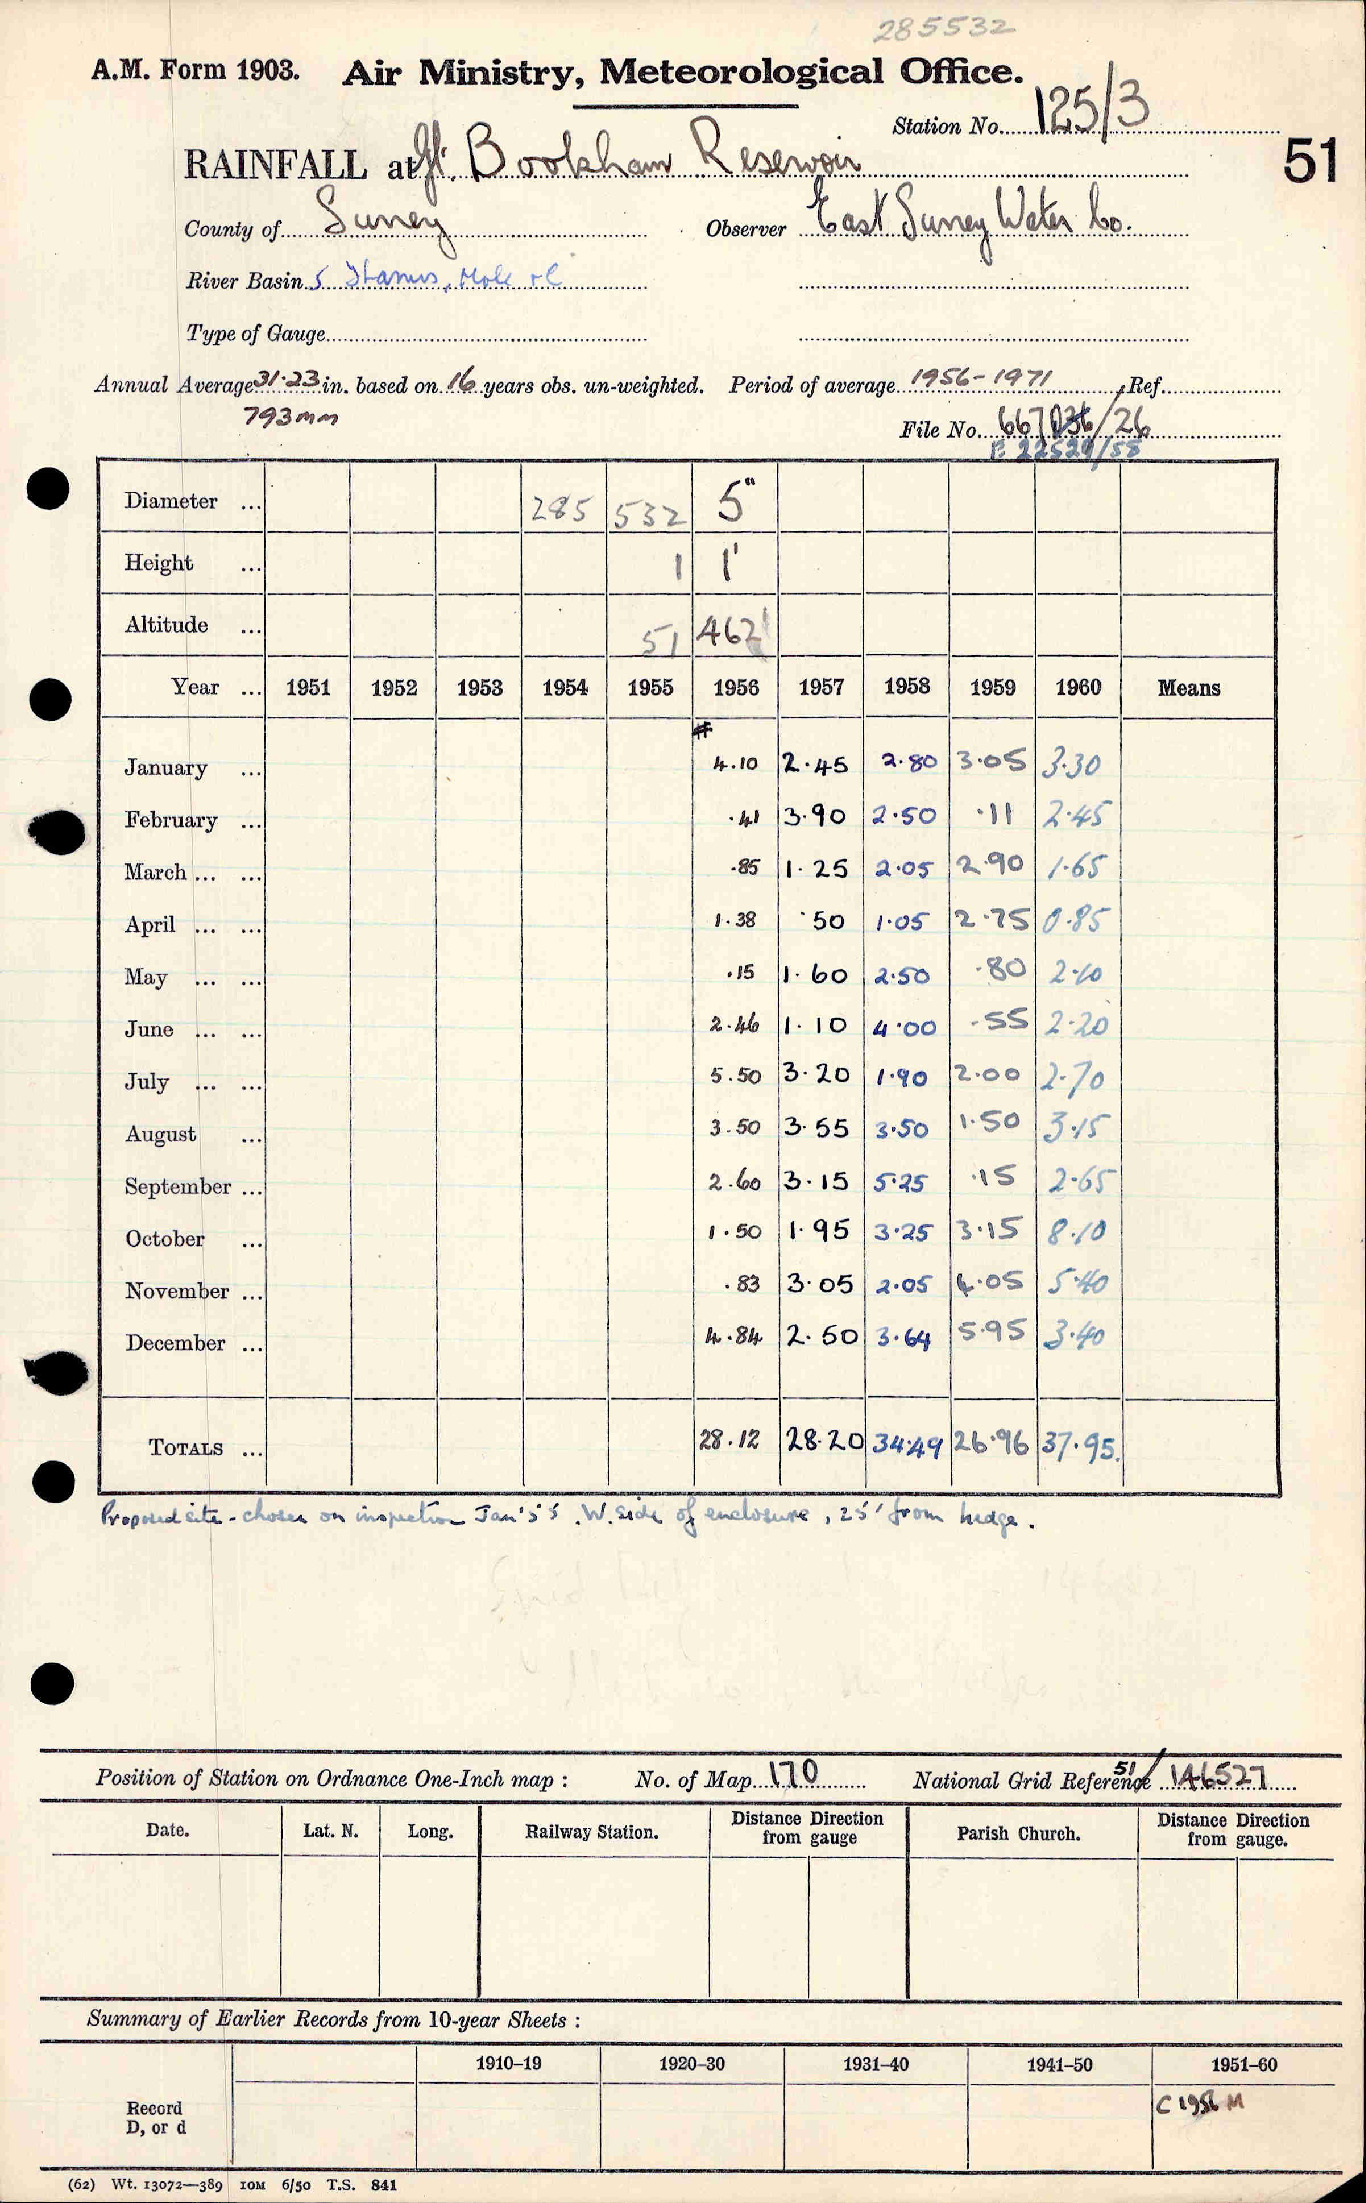 285532
A.M. Form 1903. Air Ministry, Meteorological Office.
Station No. 125/3
51
RAINFALL at Gt. Bookham Reservoir
County of Surrey Observer East Surrey Water Co.
River Basin 5 Thames, Mole
Type of Gauge
Annual Average 31.23 in. based on 16 years obs. un-weighted. Period of average 1956-1971 Ref.
793mm
File No. 667036/26
E 22529/55
Diameter ... 285 532 5"
Height ... 1 1'
Altitude ... 51 462'
Year ... 1951 1952 1953 1954 1955 1956 1957 1958 1959 1960 Means
#
January ... 4.10 2.45 2.80 3.05 3.30
February ... .41 3.90 2.50 .11 2.45
March ... ... .85 1.25 2.05 2.90 1.65
April ... ... 1.38 .50 1.05 2.75 0.85
May ... ... .15 1.60 2.50 .80 2.10
June ... ... 2.46 1.10 4.00 .55 2.20
July ... ... 5.50 3.20 1.90 2.00 2.70
August ... 3.50 3.55 3.50 1.50 3.15
September ... 2.60 3.15 5.25 .15 2.65
October ... 1.50 1.95 3.25 3.15 8.10
November ... .83 3.05 2.05 4.05 5.40
December ... 4.84 2.50 3.64 5.95 3.40
TOTALS ... 28.12 28.20 34.49 26.96 37.95
Proposed site - chosen on inspection Jan '55. W. side of enclosure, 25' from hedge.
Position of Station on Ordnance One-Inch map : No. of Map 170 National Grid Reference 51/146527
Date. Lat. N. Long. Railway Station. Distance Direction from gauge Parish Church. Distance Direction from gauge.
Summary of Earlier Records from 10-year Sheets :
1910–19 1920–30 1931–40 1941–50 1951–60
Record
D, or d
C 1956 M
(62) Wt. 13072—389 10M 6/50 T.S. 841